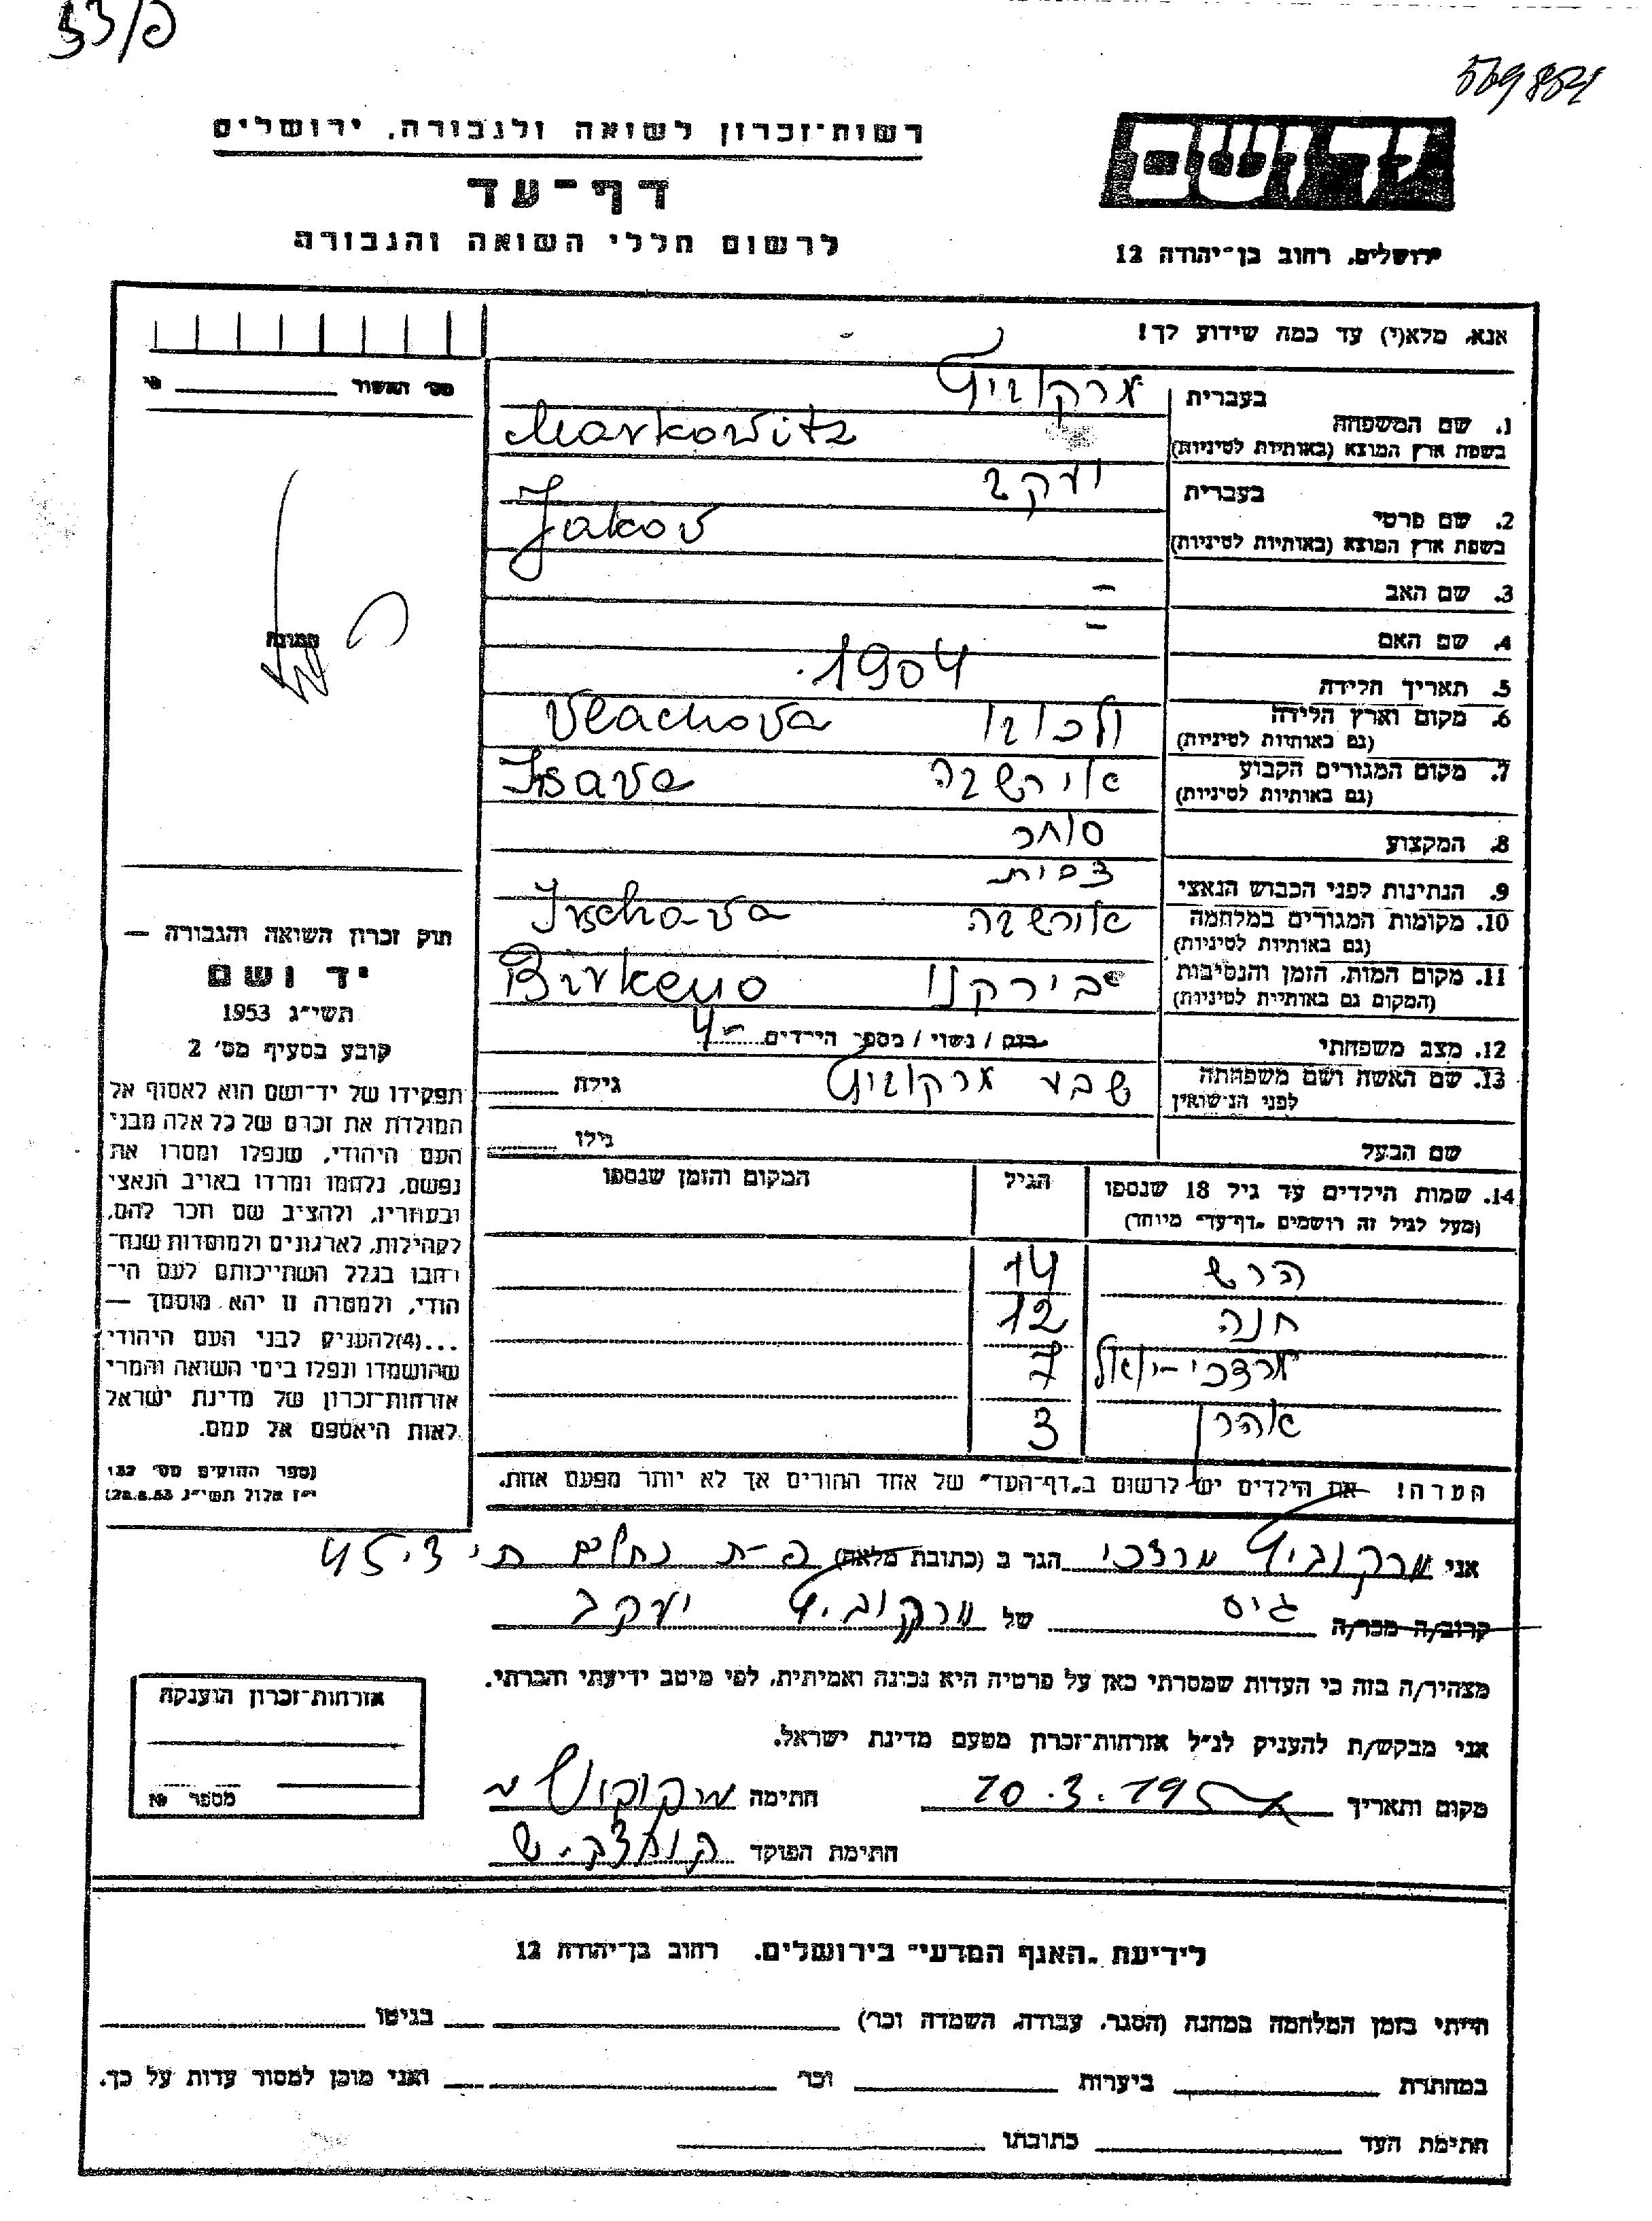 פ/33
559884
רשות־זכרון לשואה ולגבורה, ירושלים
יד ושם
דף־עד
לרשום חללי השואה והגבורה
ירושלים, רחוב בן־יהודה 12
אנא, מלא(י) עד כמה שידוע לך!
מס׳ האשור
בעברית מרקוביץ
1. שם המשפחה
בשפת ארץ המוצא (באותיות לטיניות) Markowitz
בעברית יעקב
2. שם פרטי
בשפת ארץ המוצא (באותיות לטיניות) Jakov
3. שם האב –
4. שם האם –
תמונה
5. תאריך הלידה 1904
6. מקום וארץ הלידה Vlachova
(גם באותיות לטיניות)
7. מקום המגורים הקבוע אירשבה Irsava
(גם באותיות לטיניות)
8. המקצוע סוחר
9. הנתינות לפני הכבוש הנאצי צ׳כית
10. מקומות המגורים במלחמה אורשבה Irschava
(גם באותיות לטיניות)
11. מקום המות, הזמן והנסיבות בירקנו Birkeno
(המקום גם באותיות לטיניות)
12. מצב משפחתי רווק / נשוי / מספר הילדים 4
13. שם האשה ושם משפחתה שבע מרקוביץ גילה
לפני הנישואין
שם הבעל גילו
14. שמות הילדים עד גיל 18 שנספו הגיל המקום והזמן שנספו
(מעל לגיל זה רושמים "דף־עד" מיוחד)
הרש 14
חנה 12
מרדכי-יואל 7
אהרן 3
הערה! את הילדים יש לרשום ב"דף־העד" של אחד ההורים אך לא יותר מפעם אחת.
חוק זכרון השואה והגבורה —
יד ושם
תשי״ג 1953
קובע בסעיף מס׳ 2
תפקידו של יד־ושם הוא לאסוף אל
המולדת את זכרם של כל אלה מבני
העם היהודי, שנפלו ומסרו את
נפשם, נלחמו ומרדו באויב הנאצי
ובעוזריו, ולהציב שם וזכר להם,
לקהילות, לארגונים ולמוסדות שנח־
רבו בגלל השתייכותם לעם הי־
הודי, ולמטרה זו יהא מוסמך —
...(4)להעניק לבני העם היהודי
שהושמדו ונפלו בימי השואה והמרי
אזרחות־זכרון של מדינת ישראל
לאות היאספם אל עמם.
(ספר החוקים מס׳ 132
י״ז אלול תשי״ג 28.8.53)
אני מרקוביץ מרדכי הגר ב (כתובת מלאה) פ-ת נחלים 45
קרוב/ה מכר/ה גיס של מרקוביץ יעקב
מצהיר/ה בזה כי העדות שמסרתי כאן על פרטיה היא נכונה ואמיתית, לפי מיטב ידיעתי והכרתי.
אני מבקש/ת להעניק לנ״ל אזרחות־זכרון מטעם מדינת ישראל.
מקום ותאריך 10.3.19 חתימה
חתימת הפוקד
אזרחות־זכרון הוענקה
מספר №
לידיעת "האגף המדעי" בירושלים, רחוב בן־יהודה 12
הייתי בזמן המלחמה במחנה (הסגר, עבודה, השמדה וכו׳) בגיטו
במחתרת ביערות וכו׳ ואני מוכן למסור עדות על כך.
חתימת העד כתובתו